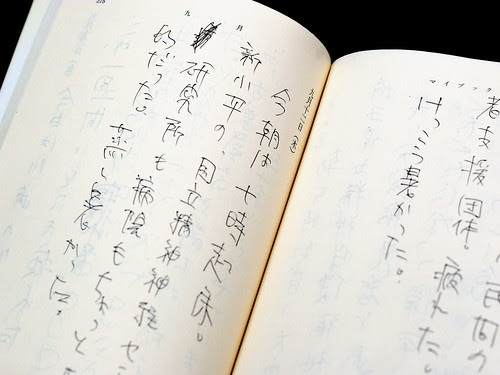 マイブック
者支援団体。疲れた。
けっこう暑かった。
九月
今朝は七時起床。
新小平の、国立精神神経セン
研究所も病院もちょっと
だった。蒸し暑かった。